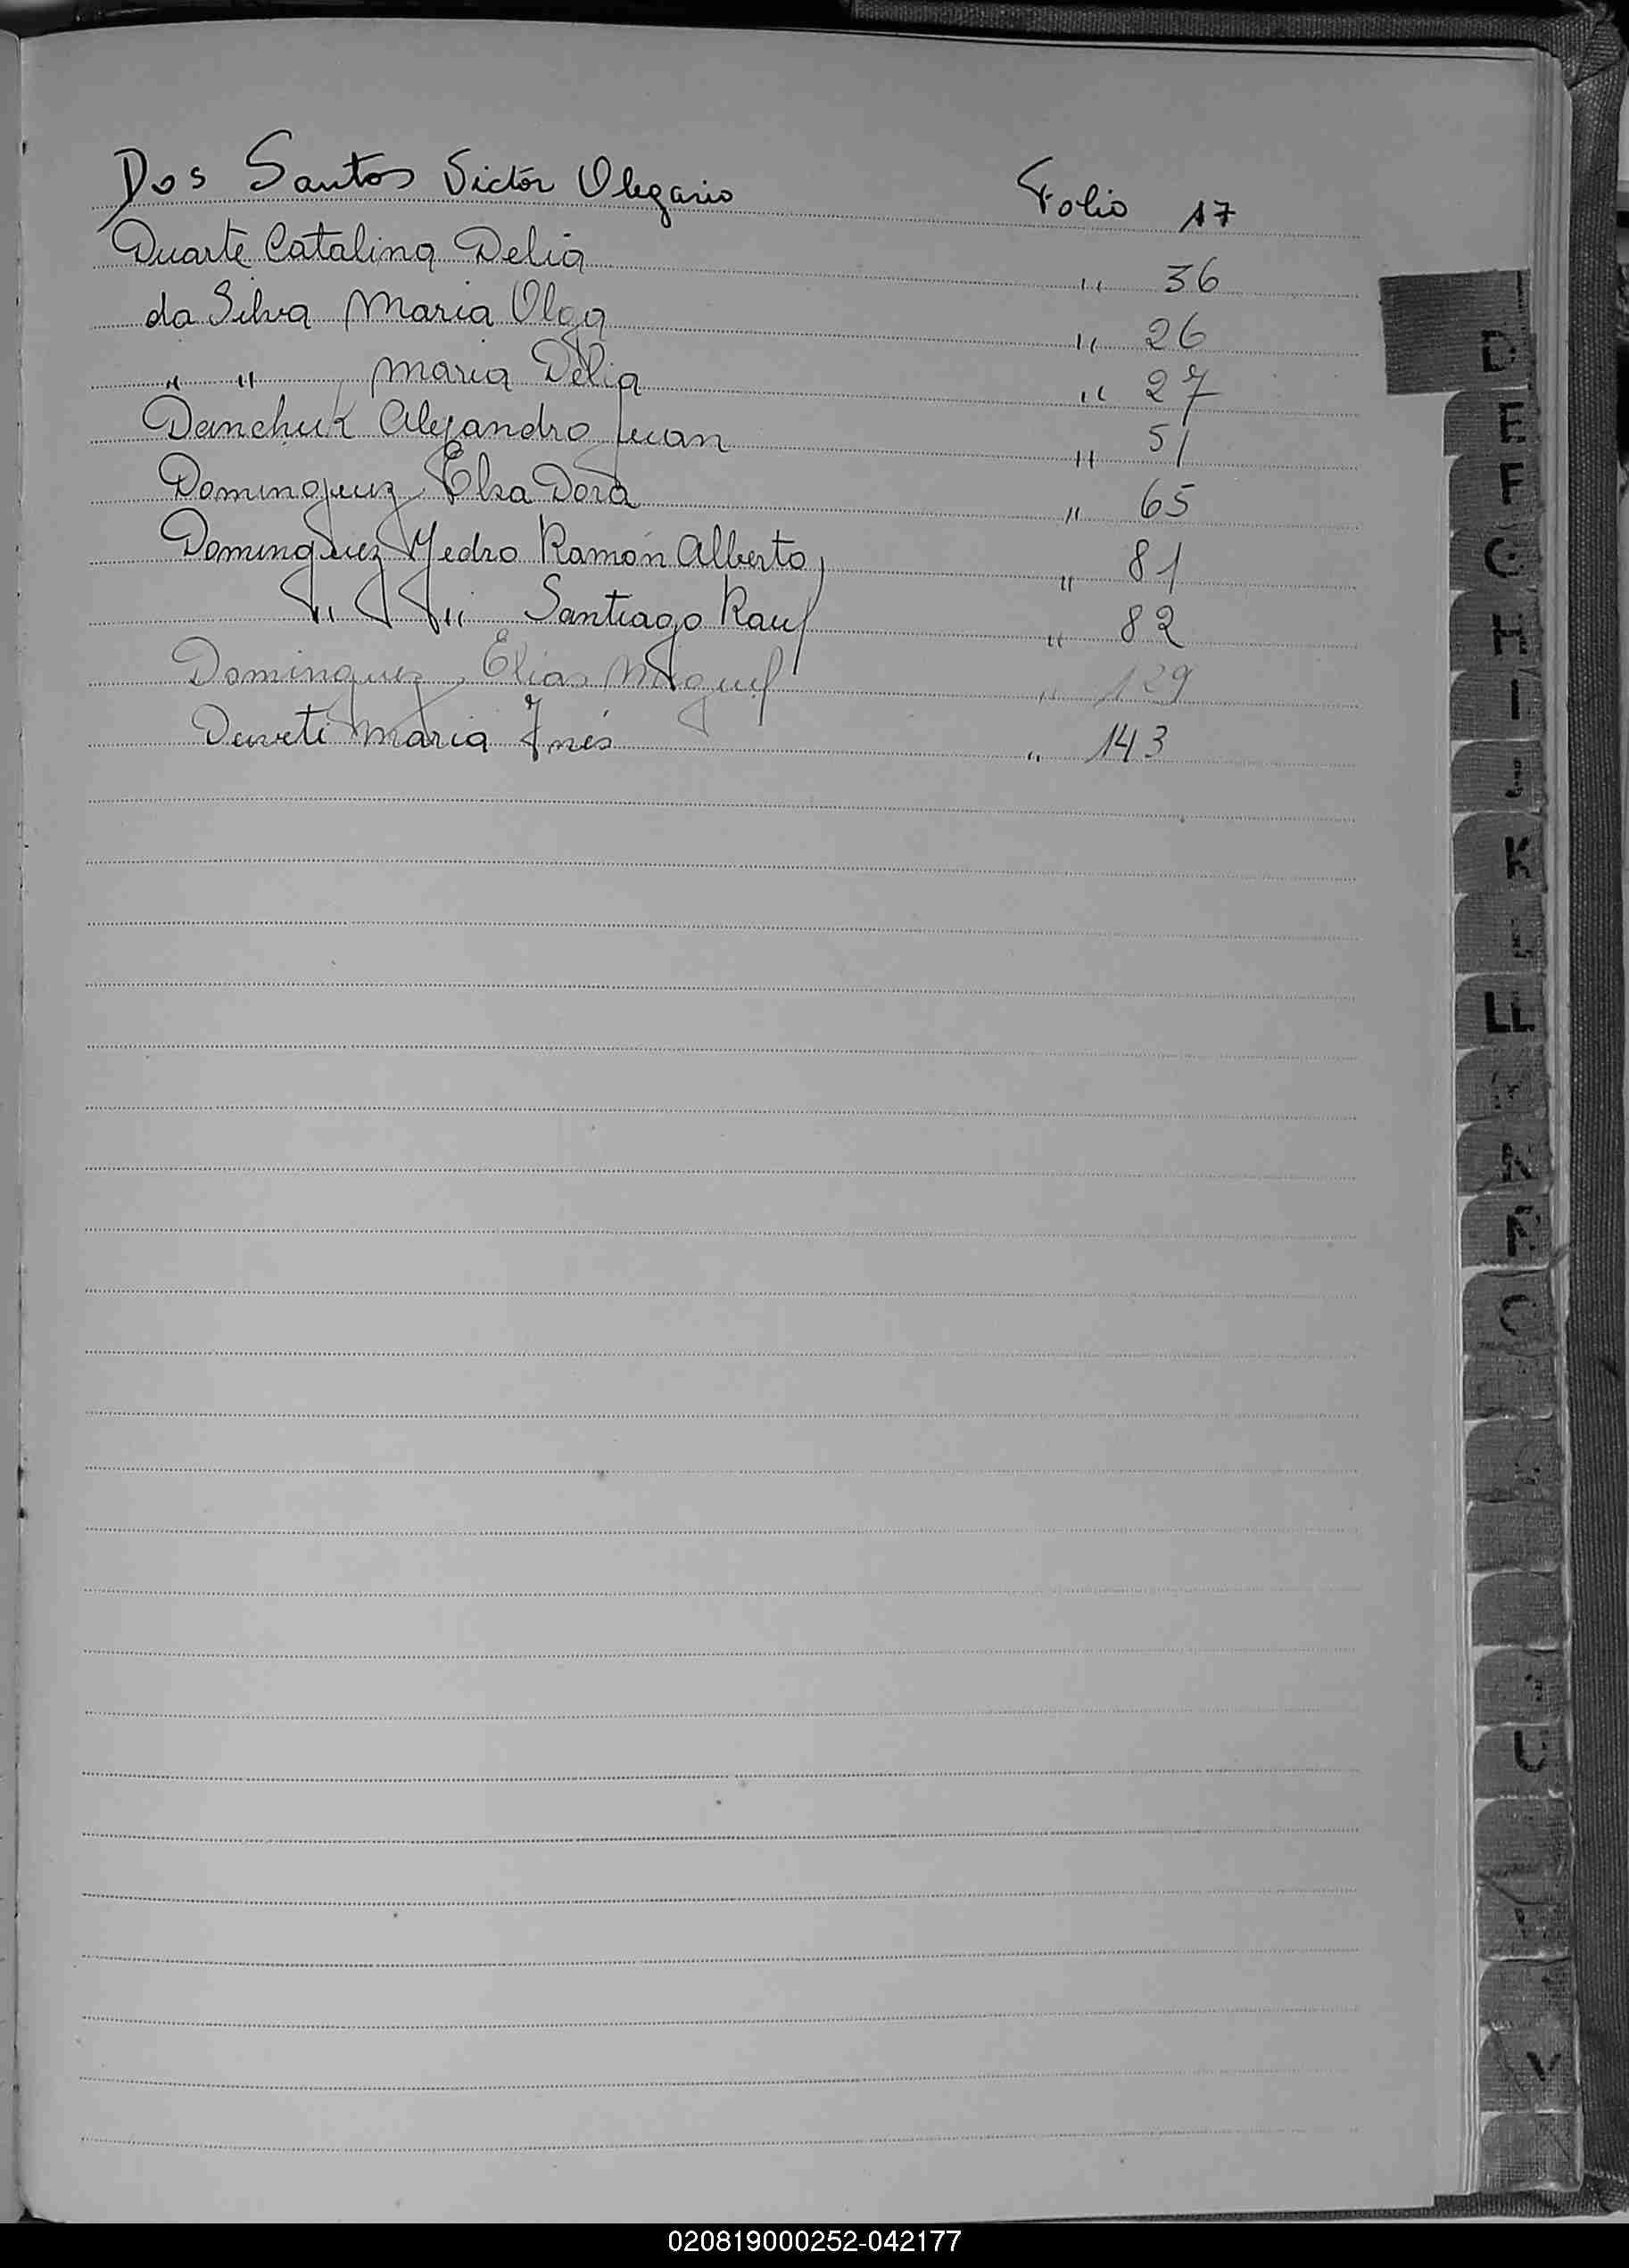 Dos Santos Victor Olegario Folio 17
Duarte Catalina Delia " 36
da Silva Maria Olga " 26
" " Maria Delia " 27
Danchuk Alejandro Juan " 51
Dominguez Elsa Dora " 65
Dominguez Pedro Ramón Alberto " 81
" " Santiago Raul " 82
Dominguez Elias Miguel " 129
Maria Inés " 143
D
E
F
G
H
I
K
V
020819000252-042177